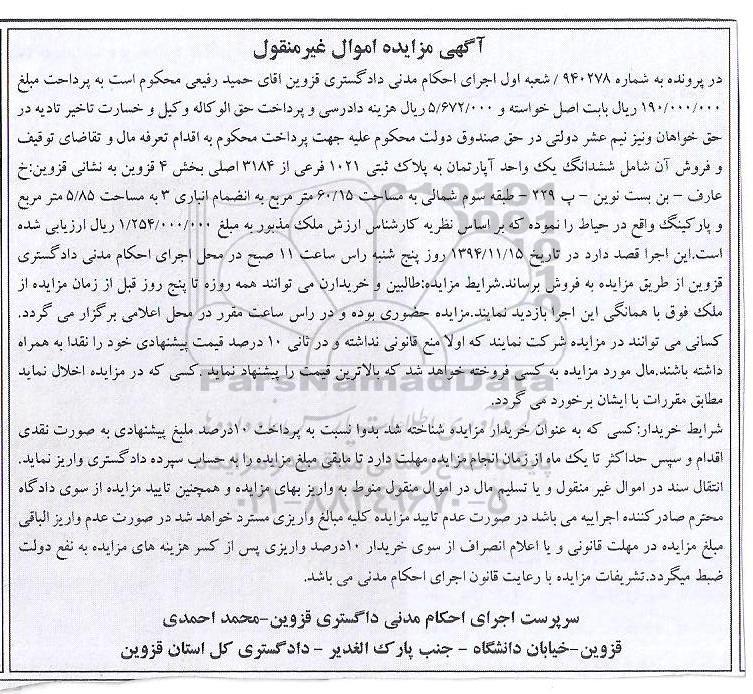 آگهی مزایده اموال غیرمنقول
در پرونده به شماره ۹۴۰۲۷۸ / شعبه اول اجرای احکام مدنی دادگستری قزوین اقای حمید رفیعی محکوم است به پرداخت مبلغ
۱۹۰/۰۰۰/۰۰۰ ریال بابت اصل خواسته و ۵/۶۷۲/۰۰۰ ریال هزینه دادرسی و پرداخت حق الوکاله وکیل و خسارت تاخیر تادیه در
حق خواهان ونیز نیم عشر دولتی در حق صندوق دولت محکوم علیه جهت پرداخت محکوم به اقدام تعرفه مال و تقاضای توقیف
و فروش آن شامل ششدانگ یک واحد آپارتمان به پلاک ثبتی ۱۰۲۱ فرعی از ۳۱۸۴ اصلی بخش ۴ قزوین به نشانی قزوین:خ
عارف - بن بست نوین - پ ۲۲۹ - طبقه سوم شمالی به مساحت ۶۰/۱۵ متر مربع به انضمام انباری ۳ به مساحت ۵/۸۵ متر مربع
و پارکینگ واقع در حیاط را نموده که بر اساس نظریه کارشناس ارزش ملک مذبور به مبلغ ۱/۲۵۴/۰۰۰/۰۰۰ ریال ارزیابی شده
است.این اجرا قصد دارد در تاریخ ۱۳۹۴/۱۱/۱۵ روز پنج شنبه راس ساعت ۱۱ صبح در محل اجرای احکام مدنی دادگستری
قزوین از طریق مزایده به فروش برساند.شرایط مزایده:طالبین و خریدارن می توانند همه روزه تا پنج روز قبل از زمان مزایده از
ملک فوق با همانگی این اجرا بازدید نمایند.مزایده حضوری بوده و در راس ساعت مقرر در محل اعلامی برگزار می گردد.
کسانی می توانند در مزایده شرکت نمایند که اولا منع قانونی نداشته و در ثانی ۱۰ درصد قیمت پیشنهادی خود را نقدا به همراه
داشته باشند.مال مورد مزایده به کسی فروخته خواهد شد که بالاترین قیمت را پیشنهاد نماید.کسی که در مزایده اخلال نماید
مطابق مقررات با ایشان برخورد می گردد.
شرایط خریدار:کسی که به عنوان خریدار مزایده شناخته شد بدوا نسبت به پرداخت ۱۰درصد ملبغ پیشنهادی به صورت نقدی
اقدام و سپس حداکثر تا یک ماه از زمان انجام مزایده مهلت دارد تا مابقی مبلغ مزایده را به حساب سپرده دادگستری واریز نماید.
انتقال سند در اموال غیر منقول و یا تسلیم مال در اموال منقول منوط به واریز بهای مزایده و همچنین تایید مزایده از سوی دادگاه
محترم صادرکننده اجراییه می باشد در صورت عدم تایید مزایده کلیه مبالغ واریزی مسترد خواهد شد در صورت عدم واریز الباقی
مبلغ مزایده در مهلت قانونی و یا اعلام انصراف از سوی خریدار ۱۰درصد واریزی پس از کسر هزینه های مزایده به نفع دولت
ضبط میگردد.تشریفات مزایده با رعایت قانون اجرای احکام مدنی می باشد.
سرپرست اجرای احکام مدنی داگستری قزوین-محمد احمدی
قزوین-خیابان دانشگاه - جنب پارک الغدیر - دادگستری کل استان قزوین
ParsNamadData
۰۲۱-۸۸۳۴۹۶۷۰-۵